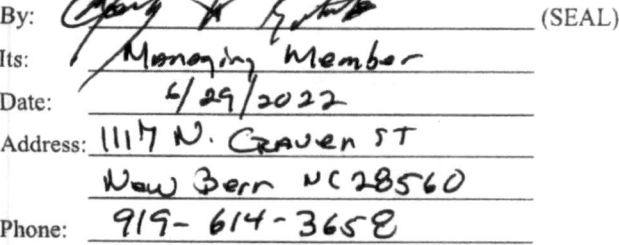 By: (SEAL)
Its: Managing Member
Date: 6/29/2022
Address: 1117 N. Craven ST
New Bern NC 28560
Phone: 919-614-3658